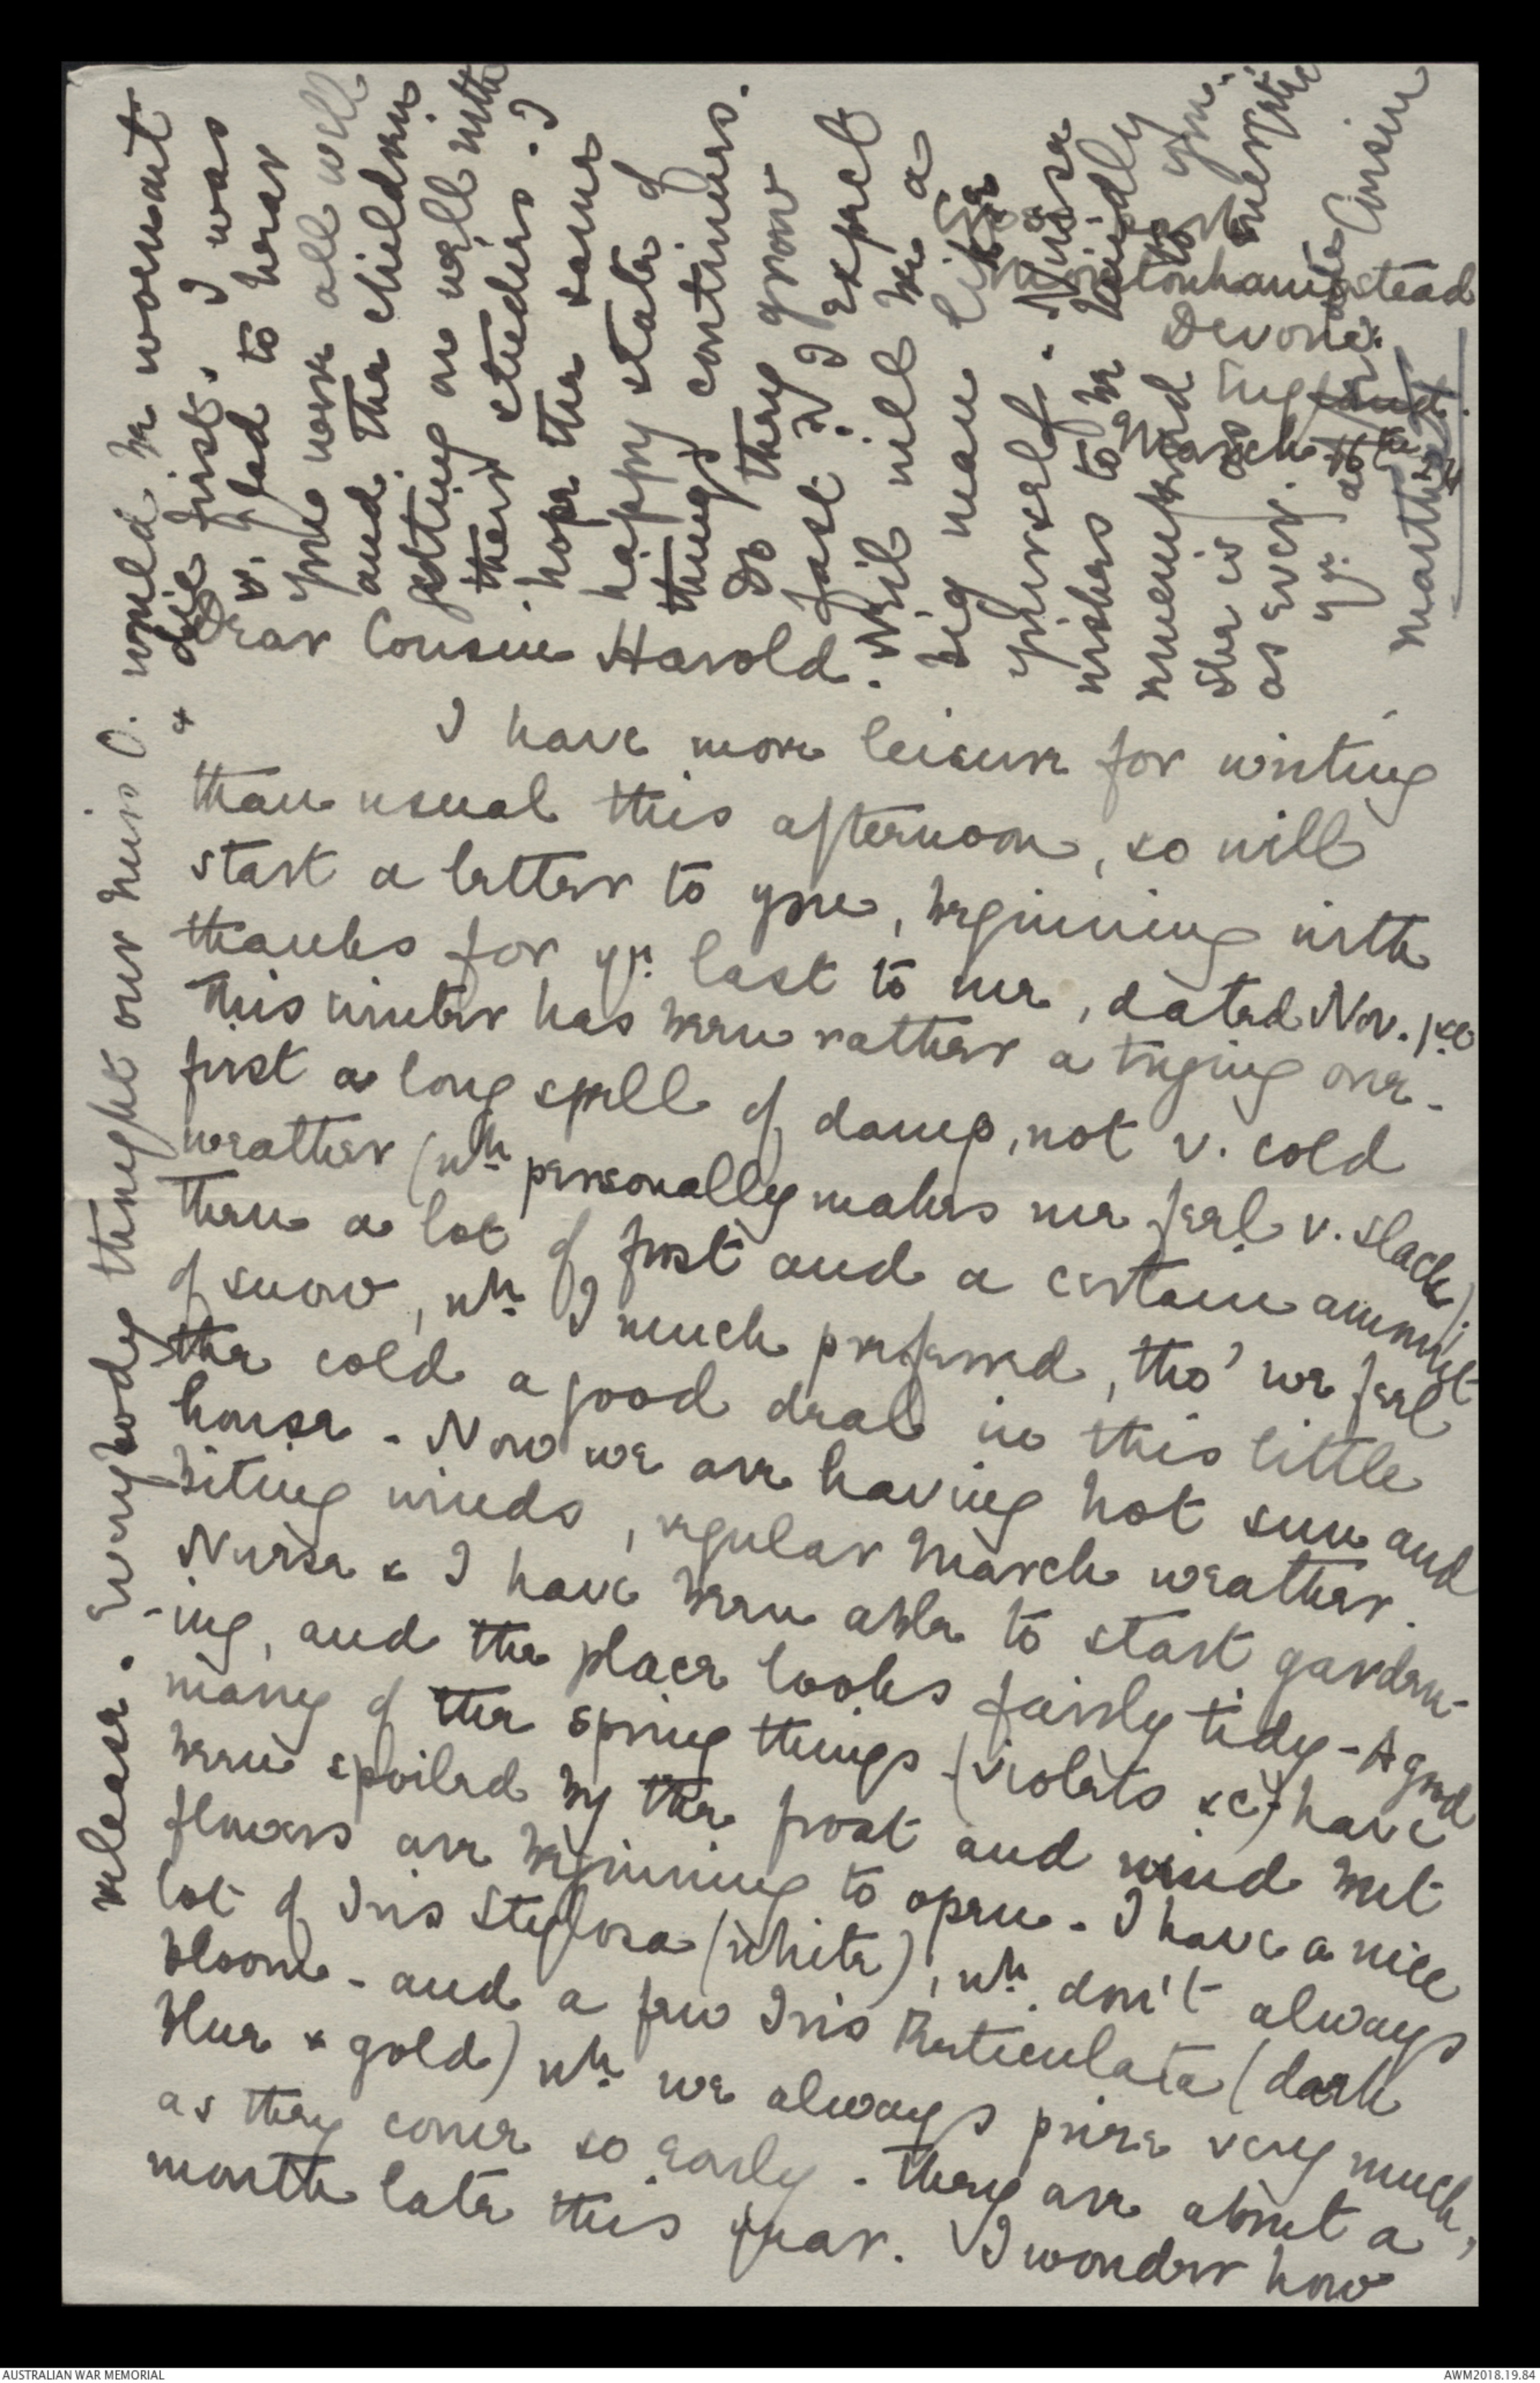 Moretonhampstead
Devon.
England.
March
Dear Cousin Harold.
I have more leisure for writing
than usual this afternoon, so will
start a letter to you, beginning with
thanks for yr. last to me, dated Nov. 1st.
This winter has been rather a trying one -
first a long spell of damp, not v. cold
weather (wh. personally makes me feel v. slack);
then a lot of frost and a certain amount
of snow, wh. I much preferred, tho' we feel
the cold a good deal in this little
house - Now we are having hot sun and
biting winds, regular March weather.
Nurse & I have been able to start garden-
-ing, and the place looks fairly tidy - A good
many of the spring things (violets &c) have
been spoiled by the frost and wind but
flowers are beginning to open - I have a nice
lot of Iris Stylosa (white), wh. don't always
bloom - and a few Iris Reticulata (dark
blue & gold) wh. we always prize very much,
as they come so early - They are about a
month late this year. I wonder how
release. Everybody thought our Miss O. would be worn out
& die first. I was
v. glad to hear
you were all well
and the children
getting on well with
their studies. I
hope the same
happy state of
things continues.
Do they grow
fast? I expect
Neil will be a
big man like
yourself. Nurse
wishes to be kindly
remembered to you.
She is as energetic
as ever.
yr. aff Cousin
Martha
AUSTRALIAN WAR MEMORIAL
AWM2018.19.84